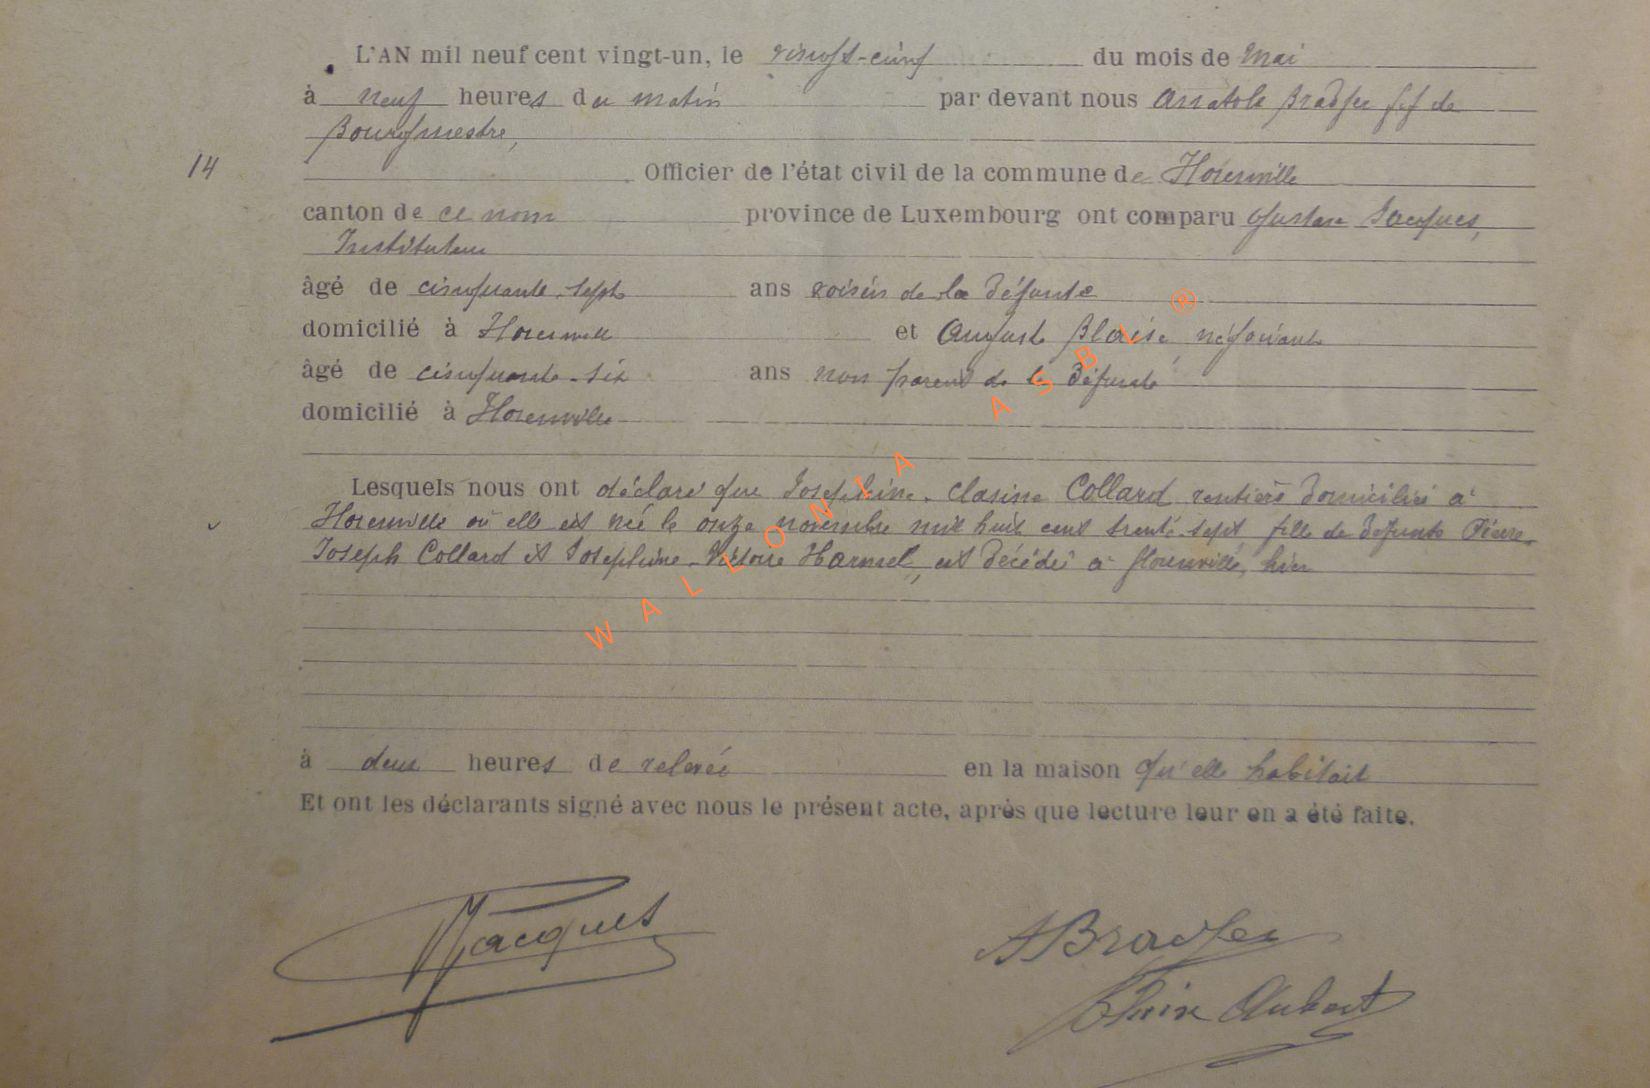 L'AN mil neuf cent vingt-un, le vingt-cinq du mois de Mai
à neuf heures du matin par devant nous Anatole Bradfer ff de
Bourgmestre,
14 Officier de l'état civil de la commune de Florenville
canton de ce nom province de Luxembourg ont comparu Gustave Jacques,
Instituteur
âgé de cinquante-sept ans voisin de la défunte
domicilié à Florenville et August Blaise négociant
âgé de cinquante-six ans non parent de la défunte
domicilié à Florenville
Lesquels nous ont déclaré que Joséphine-Clasine Collard rentière domiciliée à
Florenville où elle est née le onze novembre mil huit cent trente-sept fille de défunts Pierre-
Joseph Collard et Joséphine-Victoire Harmel, est décédée à Florenville, hier
à deux heures de relevée en la maison qu'elle habitait
Et ont les déclarants signé avec nous le présent acte, après que lecture leur en a été faite.
Jacques
ABradfer
WALLONIA ASBL ®